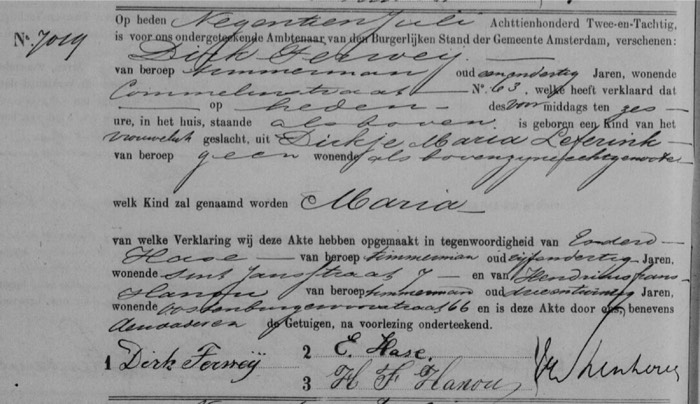 Op heden Negentien Juli Achttienhonderd Twee-en-Tachtig,
No. 7019 is voor ons ondergeteekende Ambtenaar van den Burgerlijken Stand der Gemeente Amsterdam, verschenen:
Dirk Ferweÿ
van beroep timmerman oud een en dertig Jaren, wonende
Commelinstraat No. 63, welke heeft verklaard dat
op heden des voor middags ten zes
ure, in het huis, staande als boven is geboren een Kind van het
vrouwelijk geslacht, uit Dirkje Maria Leferink
van beroep geen wonende als boven zijne echtgenoote
welk Kind zal genaamd worden Maria
van welke Verklaring wij deze Akte hebben opgemaakt in tegenwoordigheid van
Hase van beroep timmerman oud vijf en dertig Jaren,
wonende Sint Jansstraat 7 en van Hendricus Frans
Hanou van beroep timmerman oud drie en twintig Jaren,
wonende Oostenburgervoorstraat 66 en is deze Akte door ons, benevens
de Getuigen, na voorlezing onderteekend.
1 Dirk Ferweÿ 2 E. Hase.
3 H F Hanou